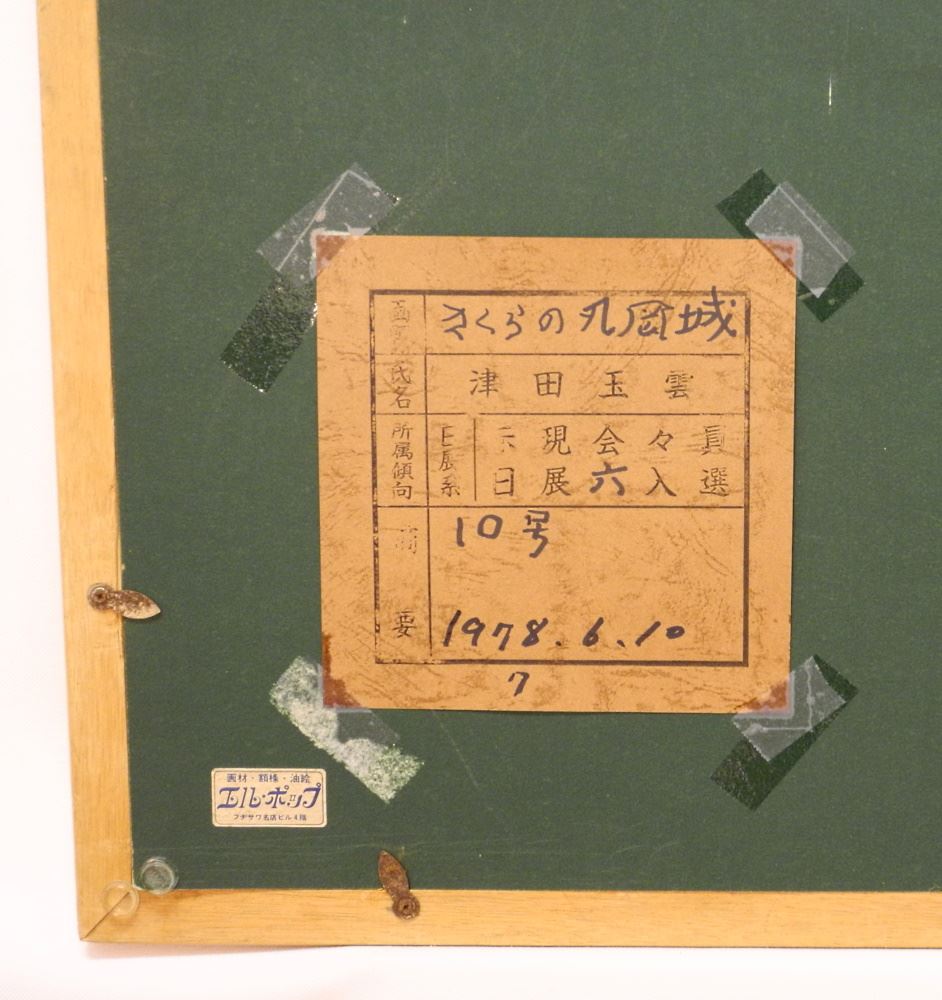 画 さくらの丸岡城
氏名 津田玉雲
所属傾向 日展系 示現会々員
日展六入選
摘要 10号
1978.6.10
7
画材・額椽・油絵
エル・ポップ
フヂサワ名店ビル4階